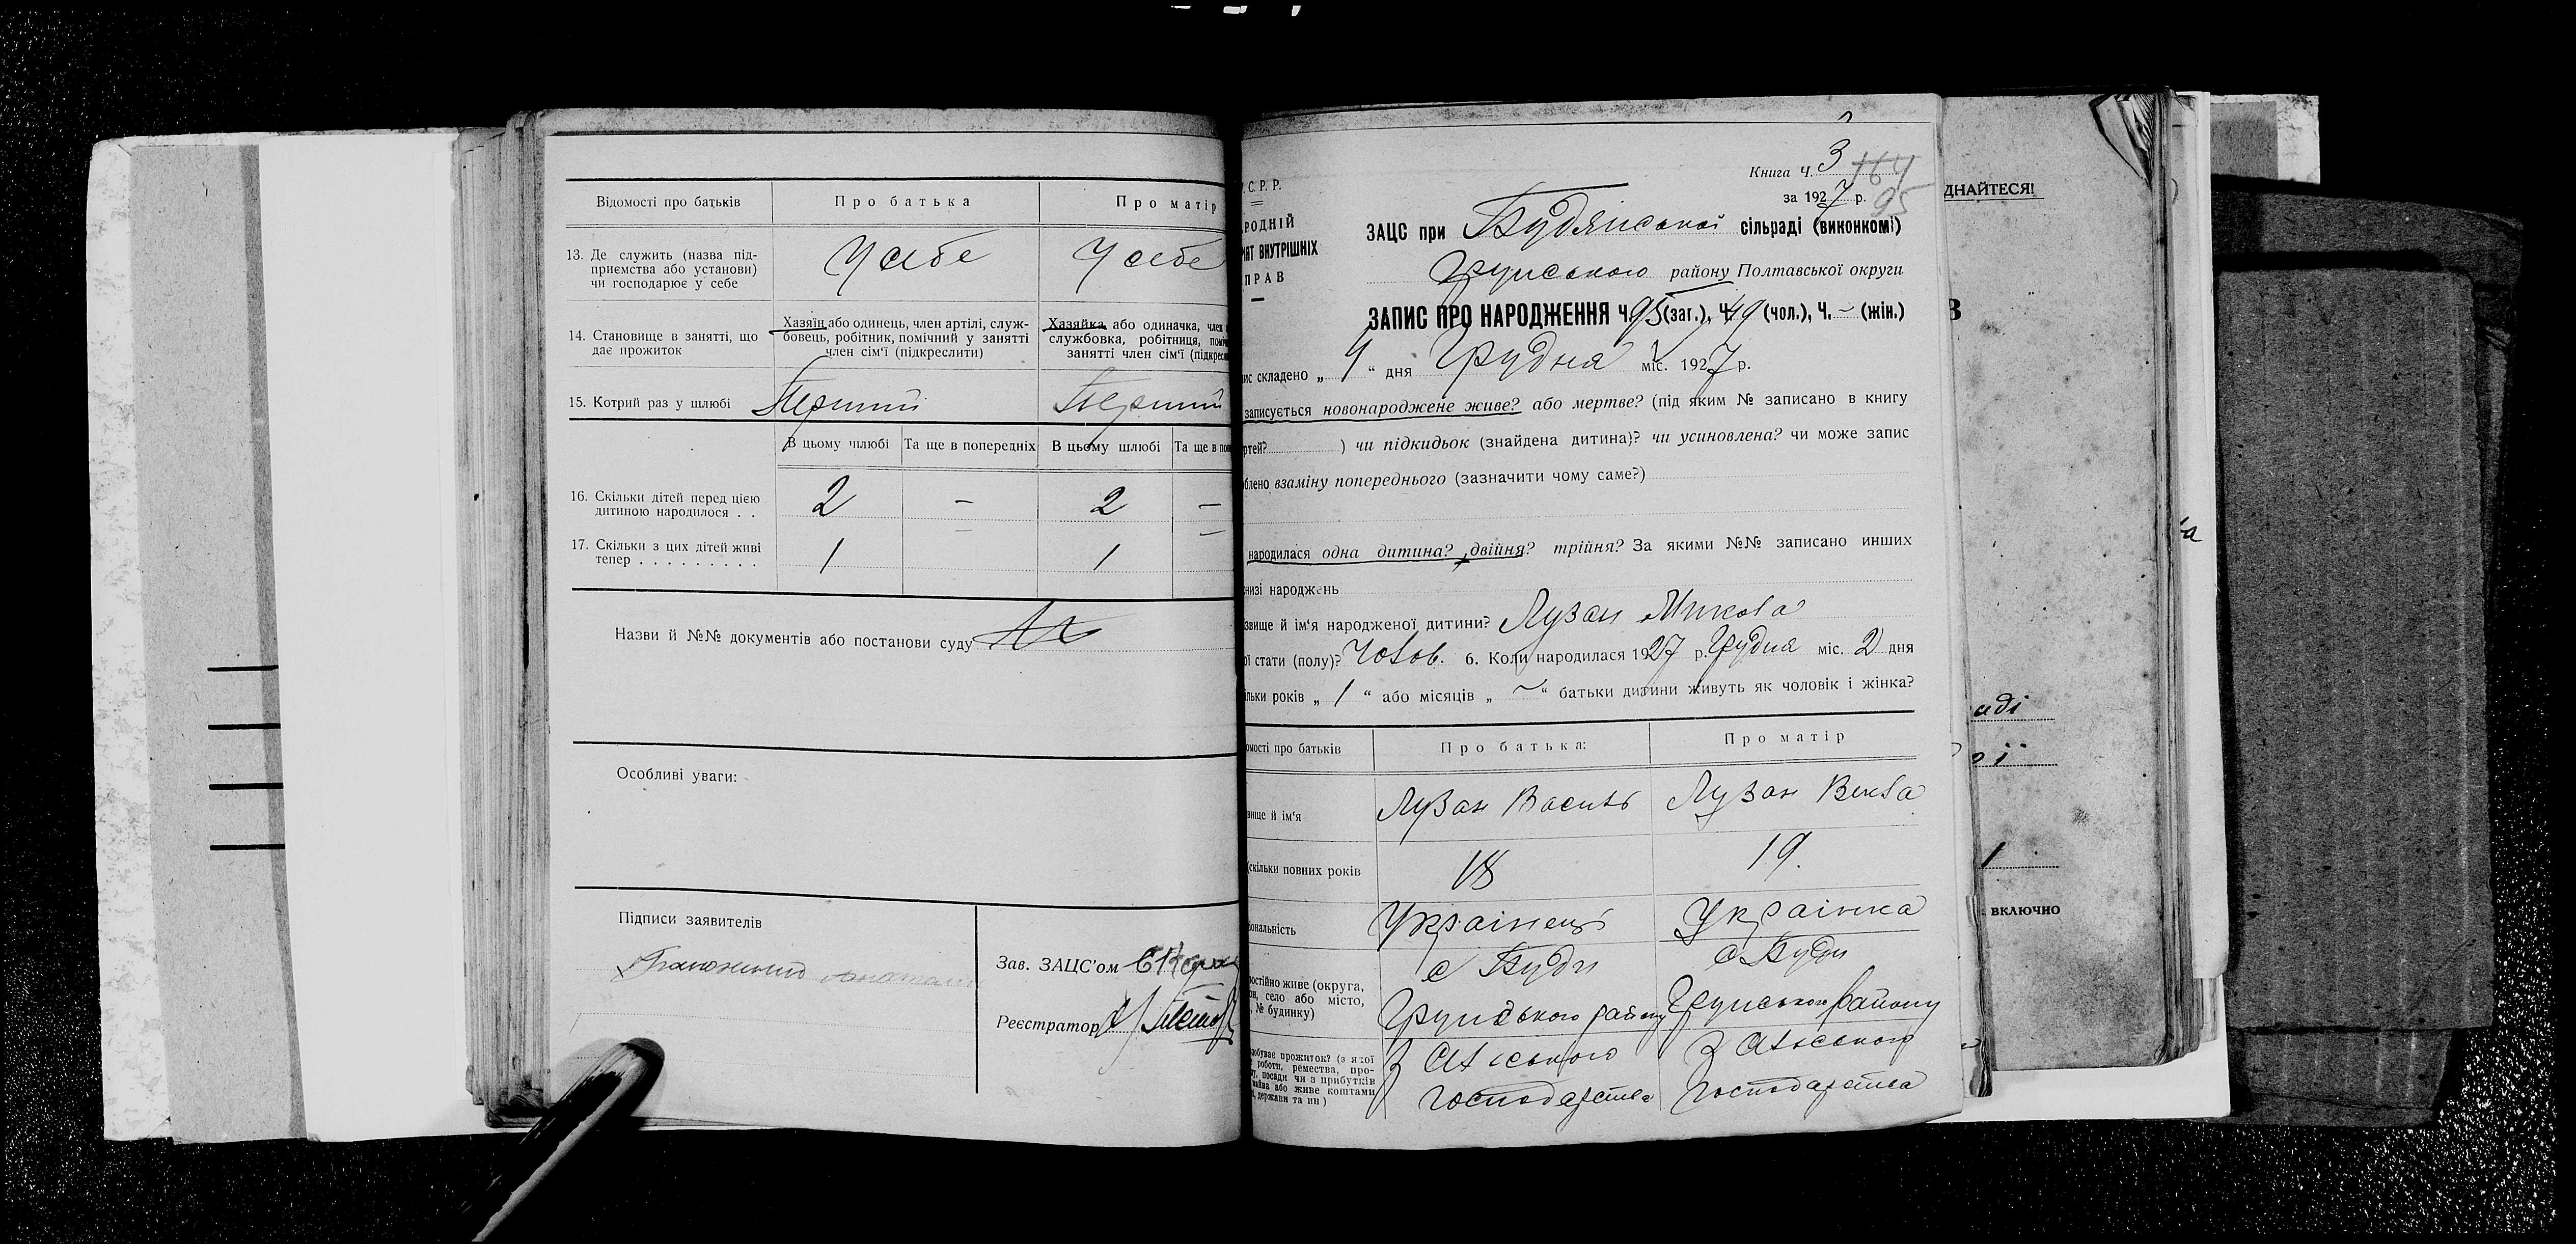 Відомості про батьків
Про батька
Про матір
13. Де служить (назва під-
приємства або установи)
чи господарює у себе
У себе
У себе
14. Становище в занятті, що
дає прожиток
Хазяїн або одинець, член артілі, служ-
бовець, робітник, помічний у занятті
член сім'ї (підкреслити)
Хазяйка або одиначка, член
службовка, робітниця,
занятті член сім'ї
15. Котрий раз у шлюбі
Перший
Перший
В цьому шлюбі
Та ще в попередніх
В цьому шлюбі
Та ще в
16. Скільки дітей перед цією
дитиною народилося . .
2 – 2 –
17. Скільки з цих дітей живі
тепер . . . . . . . . .
1 – 1 –
Назви й №№ документів або постанови суду
Особливі уваги:
Підписи заявителів
Зав. ЗАЦС'ом
Реєстратор
С. Р. Р.
РОДНІЙ
ІЯТ ВНУТРІШНІХ
ПРАВ
Книга Ч. 3
164
за 1927 р.
95
ЗАЦС при Будянської сільраді (виконкомі)
Грунського району Полтавської округи
ЗАПИС ПРО НАРОДЖЕННЯ Ч. 95 (заг.), Ч. 49 (чол.), Ч. – (жін.)
ис складено „ 9 “ дня Грудня міс. 1927 р.
записується новонароджене живе? або мертве? (під яким № записано в книгу
ртей? ) чи підкидьок (знайдена дитина)? чи усиновлена? чи може запис
блено взаміну попереднього (зазначити чому саме?)
народилася одна дитина? двійня? трійня? За якими №№ записано инших
низі народжень
звище й ім'я народженої дитини? Лузан Микола
ої стати (полу)? Чолов. 6. Коли народилася 1927 р. Грудня міс. 2 дня
ільки років „ 1 “ або місяців „ – “ батьки дитини живуть як чоловік і жінка?
омості про батьків
Про батька:
Про матір
вище й ім'я
Лузан Василь
Лузан Векла
(скільки повних років
18
19.
іональність
Українець
Українка
остійно живе (округа,
он, село або місто,
, № будинку)
с Буди
Грунського району
с Буди
Грунського району
обуває прожиток? (з якої
роботи, ремества, про-
, посади чи з прибутків
айна або живе коштами
, держави та ин)
З сільського
господарства
З сільського
господарства
ДНАЙТЕСЯ!
В
аді
ої
1
включно